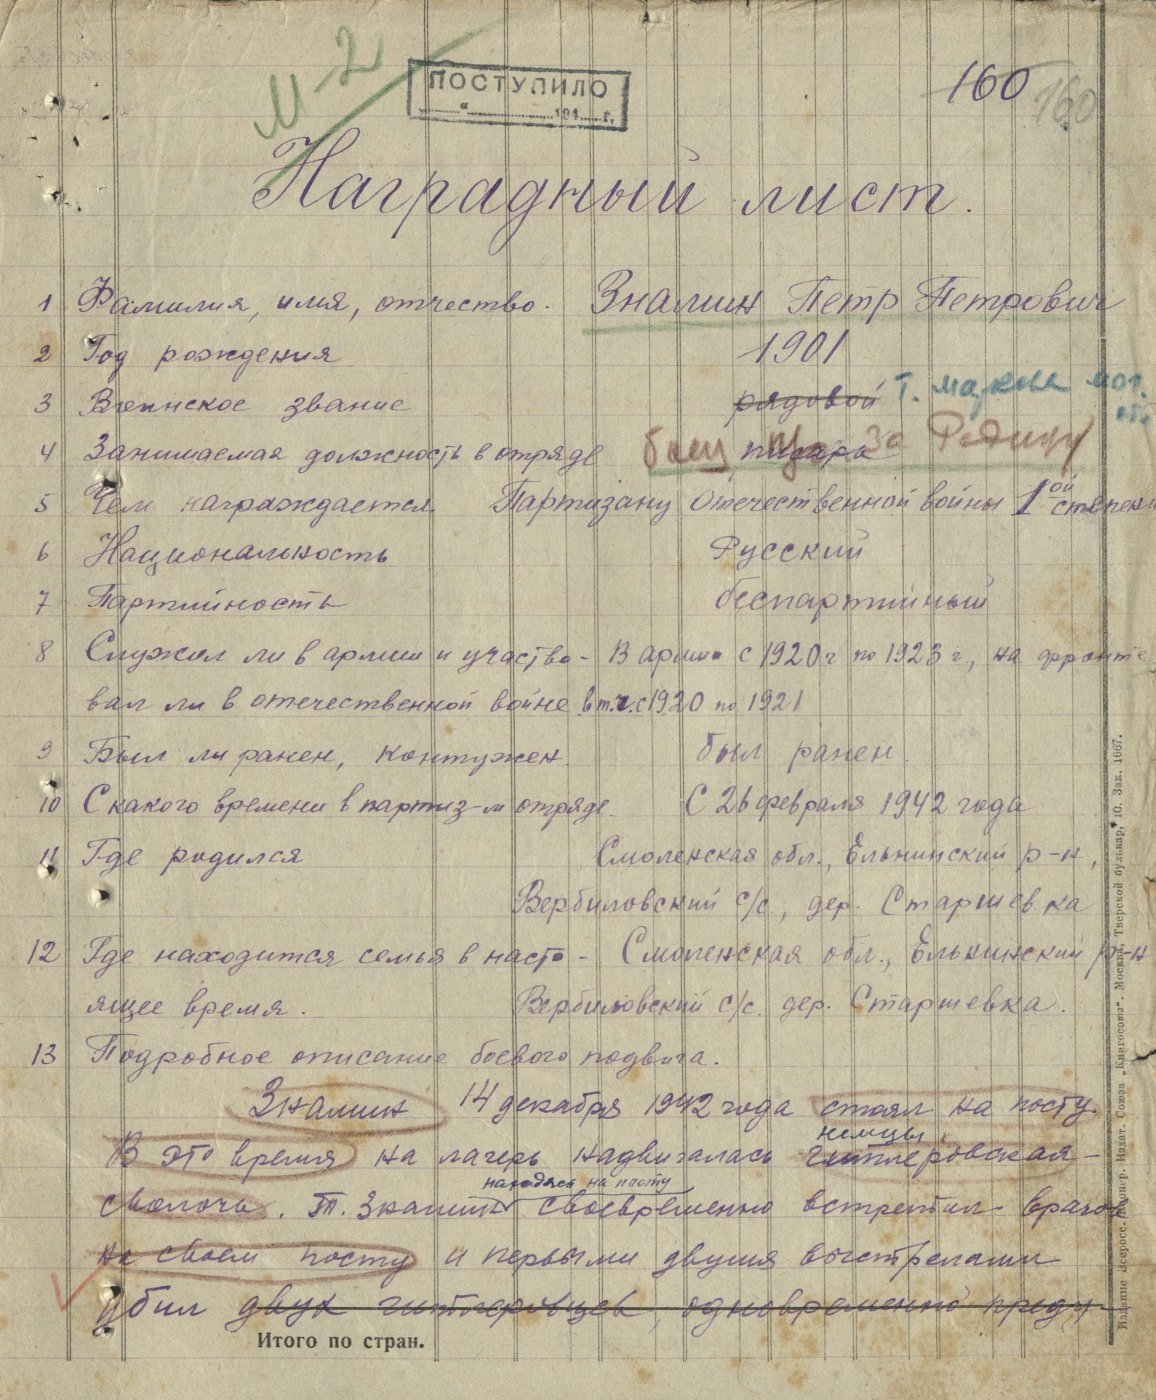 М-2
ПОСТУПИЛО
"
194 г.
160
160
Наградный лист.
1 Фамилия, имя, отчество. Зналин Петр Петрович
2 Год рождения 1901
3 Воинское звание рядовой Т.
4 Занимаемая должность в отряде боец писарь За Родину
5 Чем награждается. Партизану Отечественной войны 1ой степени
6 Национальность Русский
7 Партийность беспартийный
8 Служил ли в армии и участво- В армии с 1920 г по 1923 г., на фронте
вал ли в отечественной войне в т.ч. с 1920 по 1921
9 Был ли ранен, контужен. был ранен.
10 С какого времени в партиз-м отряде. С 26 февраля 1942 года
11 Где родился Смоленская обл., Ельнинский р-н,
Вербиловский с/с, дер. Старшевка
12 Где находится семья в насто- Смоленская обл., Ельнинский р-н
ящее время. Вербиловский с/с. дер. Старшевка.
13 Подробное описание боевого подвига.
Зналин 14 декабря 1942 года стоял на посту.
немцы
В это время на лагерь надвигалась гитлеровская-
находясь на посту
сволочь. Т. Зналин своевременно встретил врагов
на своем посту и первыми двумя выстрелами
убил двух гитлеровцев, одновременно преду-
Итого по стран.
Издание Всеросс. Коопер. Издат. Союза „Книгосоюз". Москва, Тверской бульвар, 10. Зак. 1667.